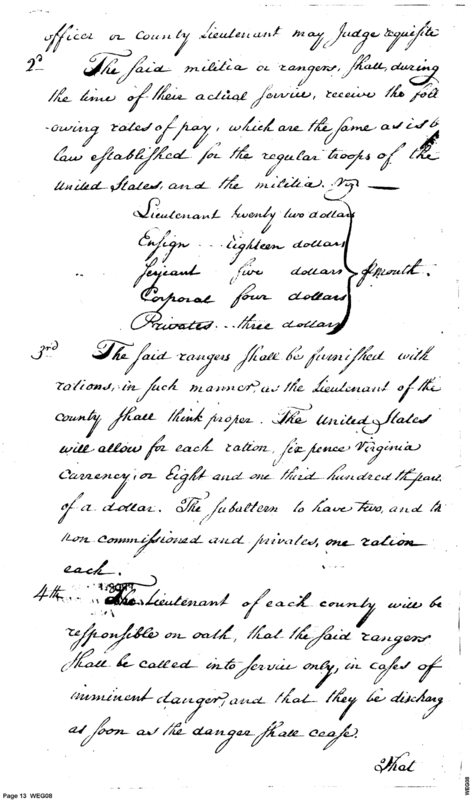 officer or county Lieutenant may Judge requisite
2d The said militia or rangers, shall, during
the time of their actual service, receive the foll
owing rates of pay, which are the same as is b
law established for the regular troops of the
United States, and the militia. Viz —
Lieutenant twenty two dollars
Ensign ... Eighteen dollars
Serjeant five dollars
Corporal four dollars
Privates ... three dollars
⅌ month.
3rd The said rangers shall be furnished with
rations, in such manner, as the Lieutenant of the
county shall think proper. The United States
will allow for each ration, six pence Virginia
currency, or Eight and one third hundredth parts
of a dollar. The subaltern to have two, and th
non commissioned and privates, one ration
each.
4th The Lieutenant of each county will be
responsible on oath, that the said rangers
shall be called into service only, in cases of
imminent danger, and that they be discharg
as soon as the danger shall cease.
That
Page 13 WEG08
WEG08